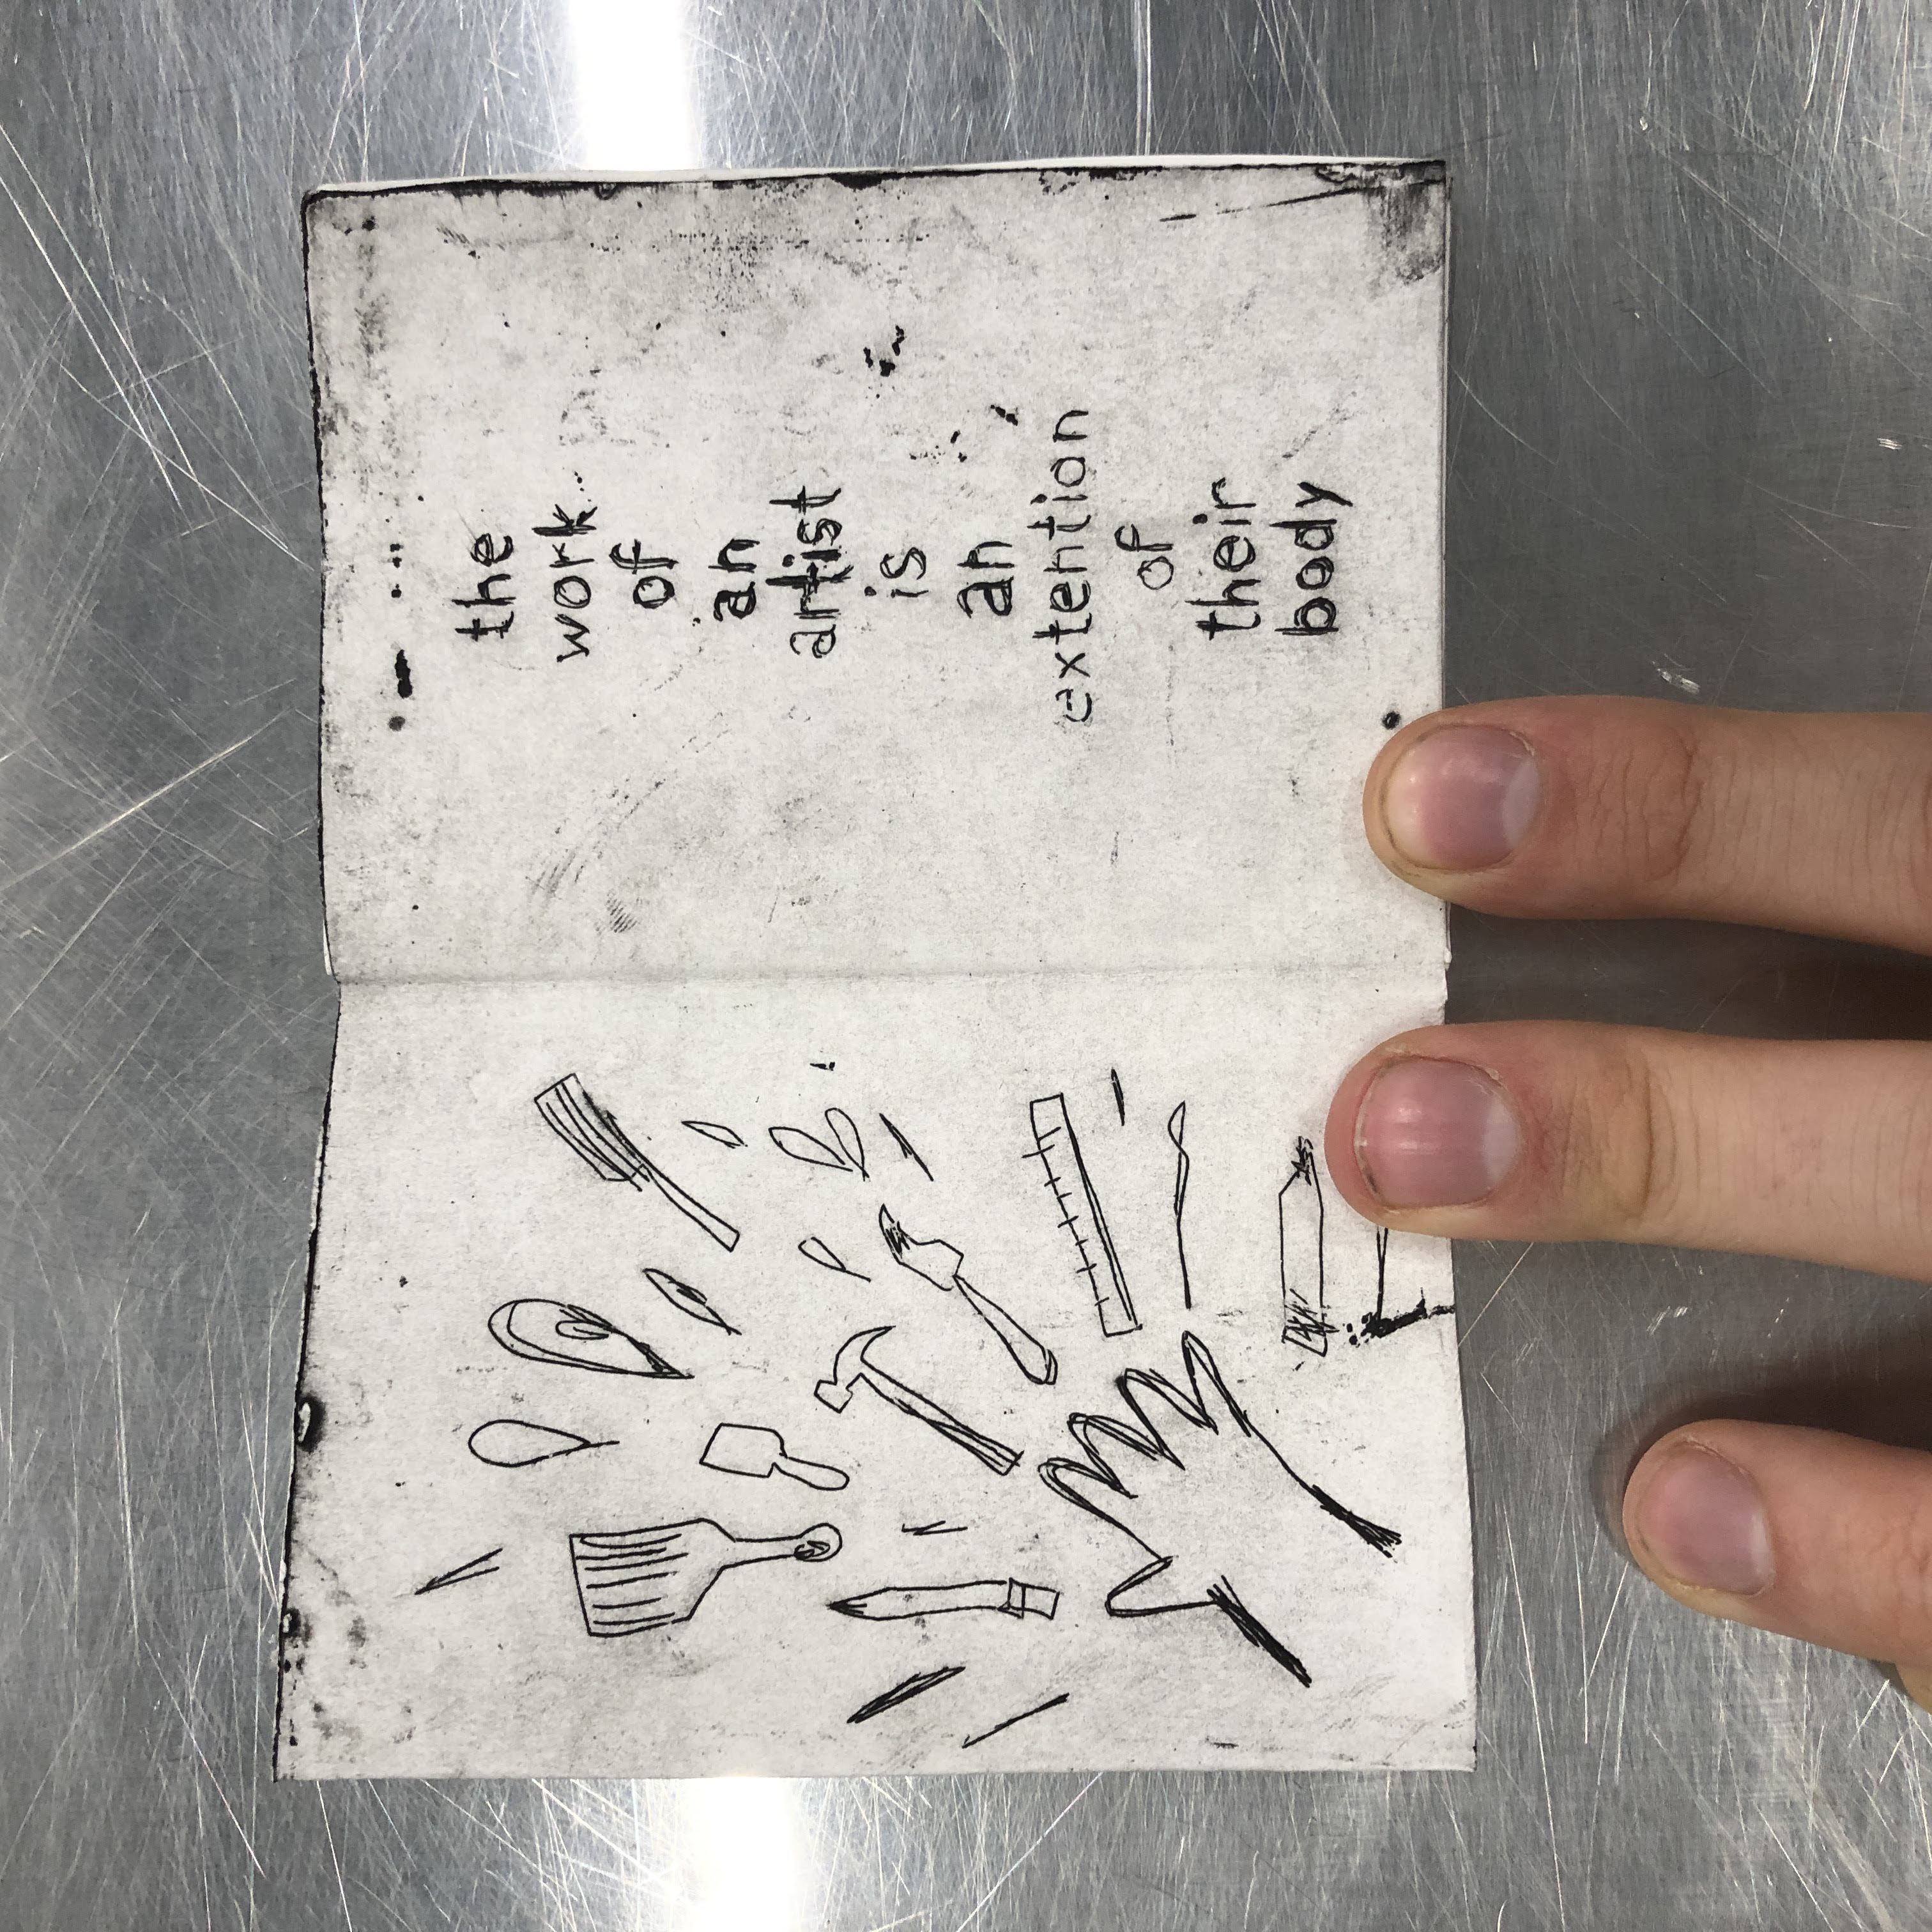 the
work
of
an
artist
is
an
extention
of
their
body